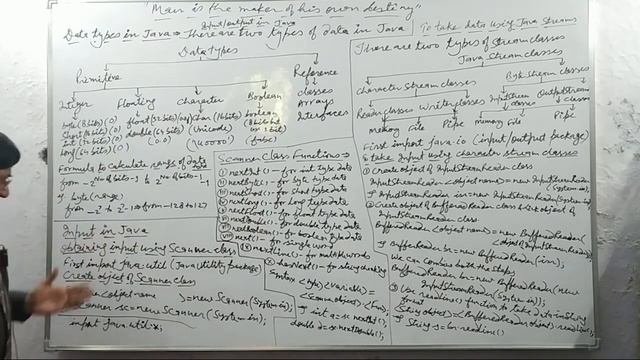 "Man is the maker of his own destiny"
Input/output in Java
Data types in Java ⇒ There are two types of data in Java
Data types
Primitive
Reference
Integer
Floating
Character
Boolean
classes
Arrays
Interfaces
byte (8 bits) (0)
short (16 bits) (0)
int (32 bits) (0)
long (64 bits) (0)
float (32 bits)
double (64 bits)
(0.0)
char (16 bits)
(Unicode)
boolean
(false)
Formula to calculate range of data
byte (range)
from -128 to 127
Input in Java
Obtaining input using Scanner class
First import java.util (Java utility package)
Create object of Scanner class
object name = new Scanner (System.in);
Scanner sc = new Scanner (System.in);
import java.util.*;
Scanner Class Functions →
nextInt() - for int type data
nextByte() - for byte type data
nextShort() - for short type data
nextLong() - for long type data
nextFloat() - for float type data
nextDouble() - for double type data
nextBoolean() - for boolean type data
next() - for single word
nextLine() - for multiple words
Syntax <type> <variable> =
<Scanner object>.<fun>
int a = sc.nextInt();
double d = sc.nextDouble();
To take data using Java Streams
There are two types of stream classes
Java Stream classes
Character Stream classes
Byte Stream classes
Reader classes
Writer classes
InputStream classes
OutputStream classes
Memory
File
Pipe
Memory
File
Pipe
First import java.io (input/output package)
To take Input using character stream classes
① Create object of InputStreamReader class
InputStreamReader <object name> = new InputStreamReader (System.in);
InputStreamReader isr = new InputStreamReader (System.in);
② Create object of BufferedReader class
InputStreamReader class
BufferedReader <object name> = new BufferedReader (<object of InputStreamReader>);
BufferedReader br = new BufferedReader (isr);
We can combine both the steps
BufferedReader br = new BufferedReader (new InputStreamReader (System.in));
③ Use readLine() function to take data in String
<String object> = <BufferedReader object>.readLine();
String s = br.readLine()